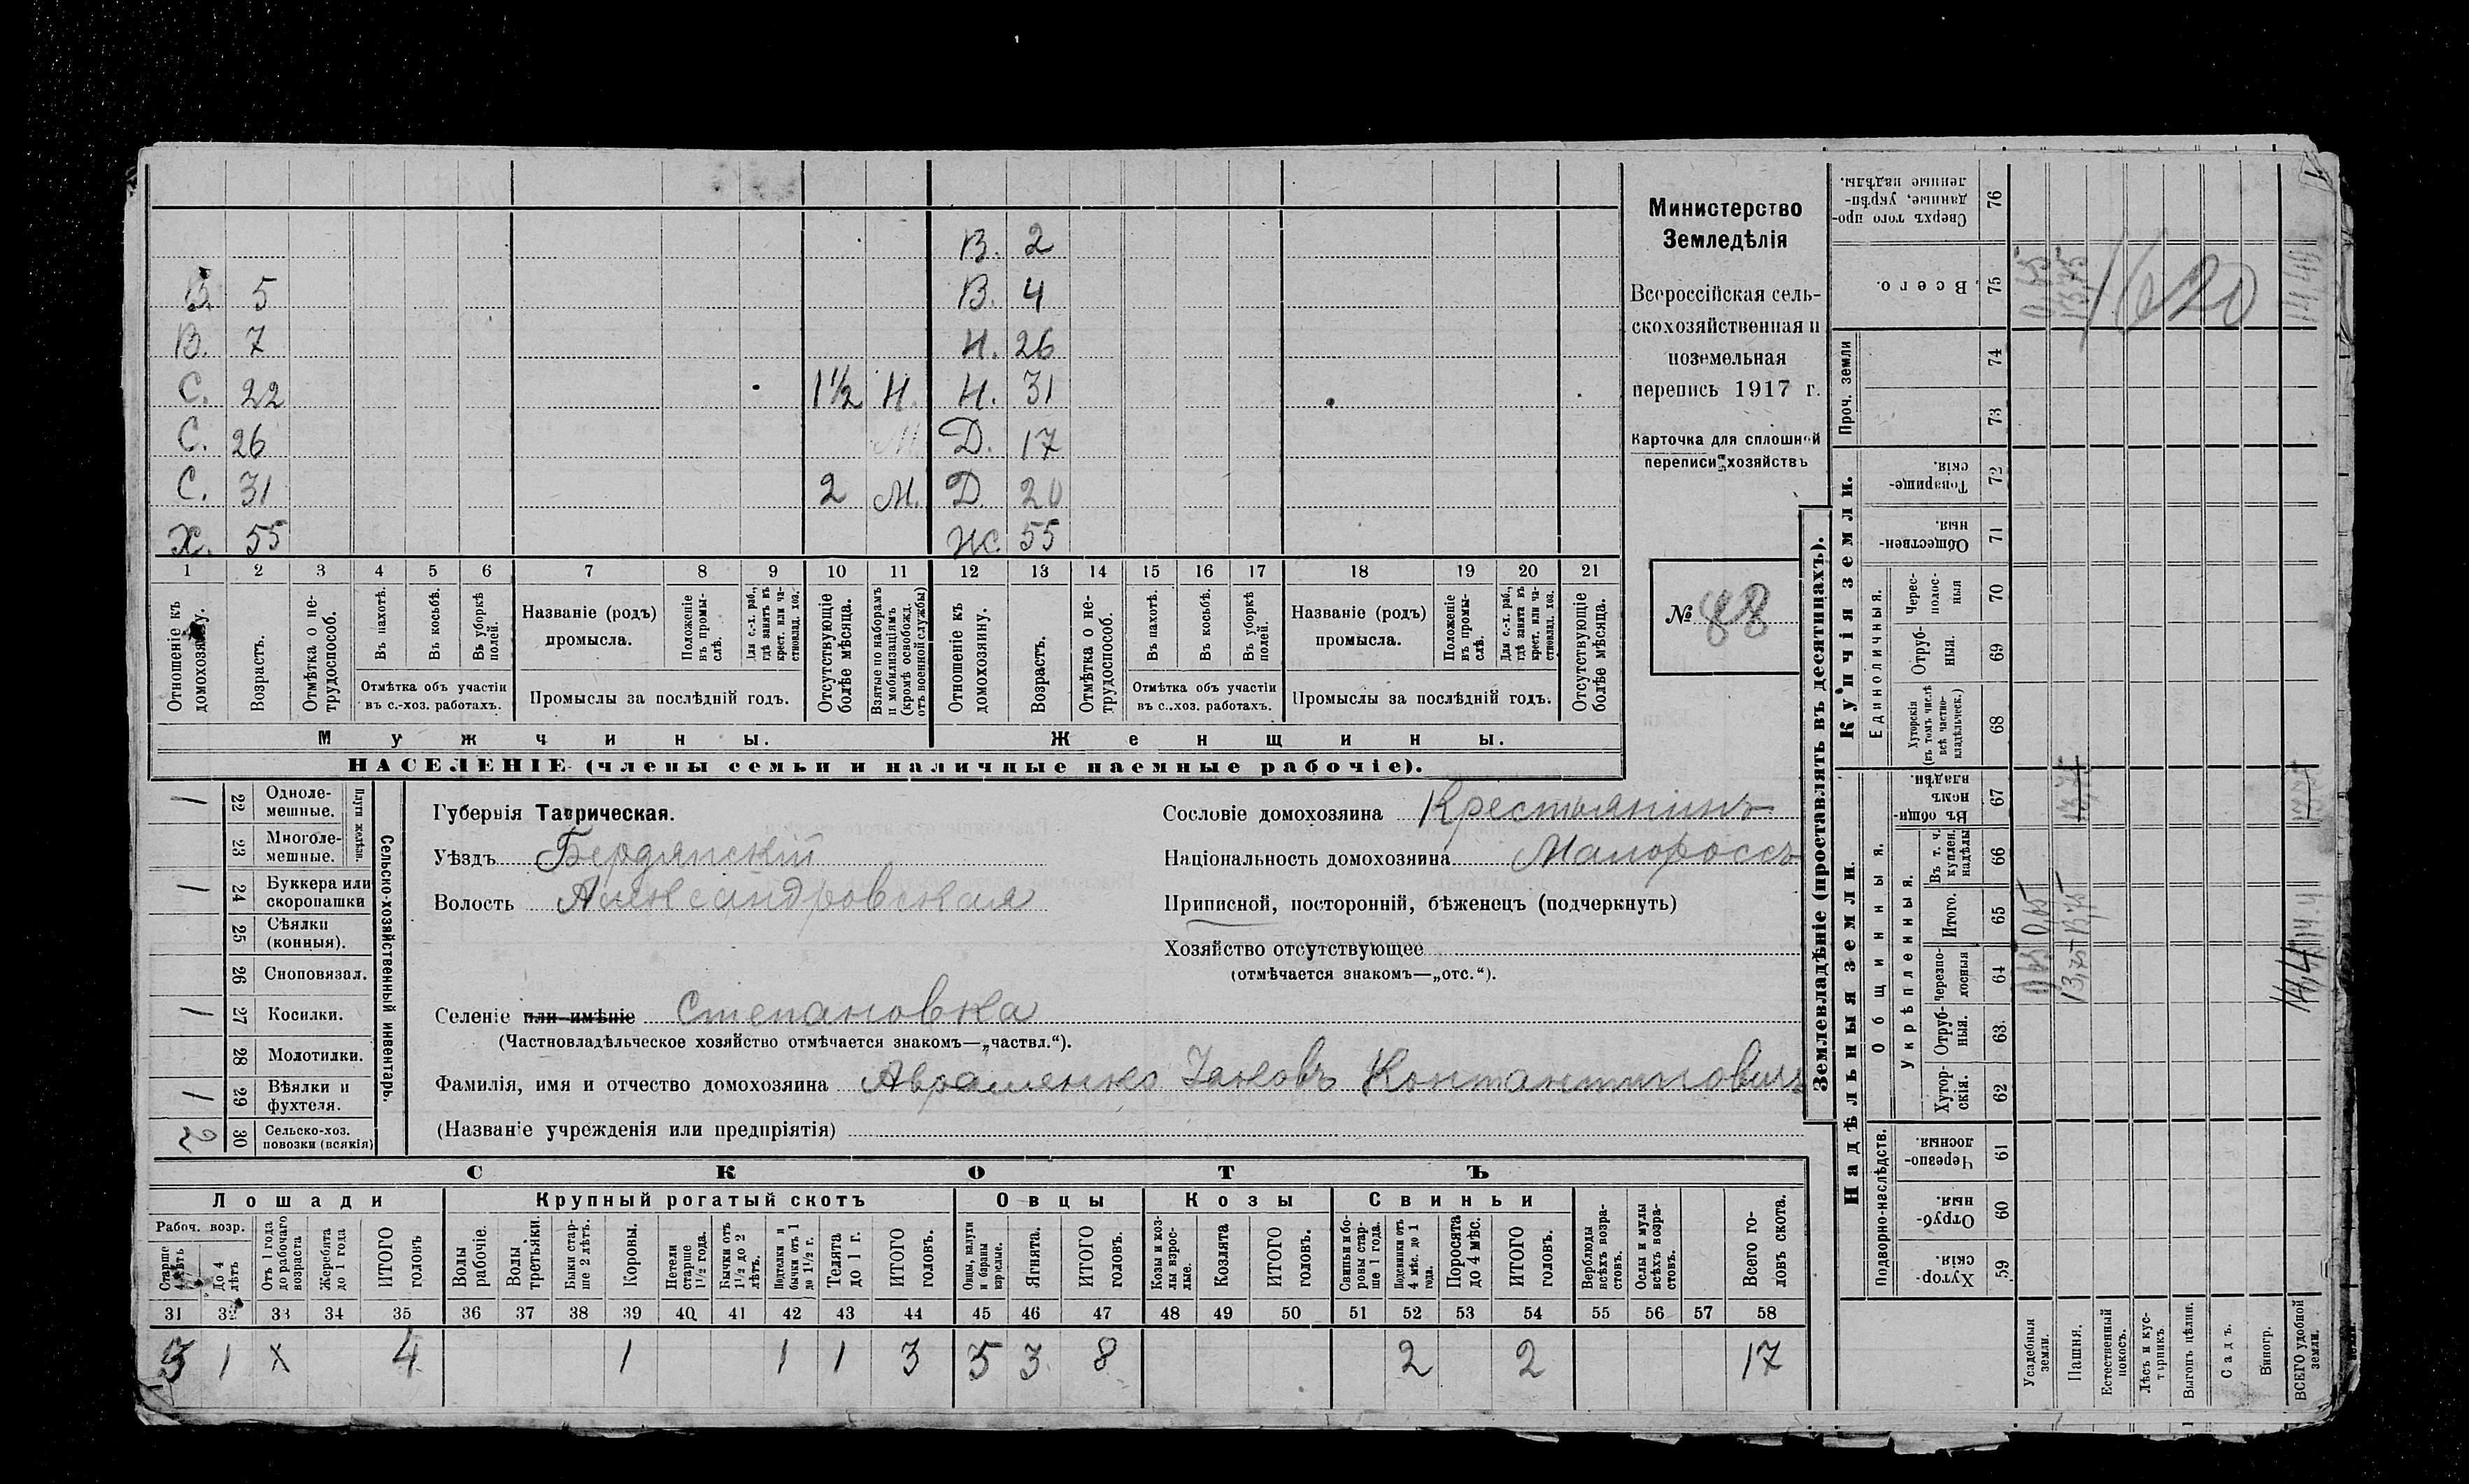 В. 2
В. 5 В. 4
В. 7 Н. 26
С. 22 1½ Н. Н. 31
С. 26 М. Д. 17
С. 31 2 М. Д. 20
Х. 55 Ж 55
1 2 3 4 5 6 7 8 9 10 11 12 13 14 15 16 17 18 19 20 21
Отношеніе къ домохозяину.
Возрастъ.
Отмѣтка о не-трудоспособ.
Въ пахотѣ.
Въ косьбѣ.
Въ уборкѣ полей.
Отмѣтка объ участіи
въ с.-хоз. работахъ.
Названіе (родъ)
промысла.
Положеніе въ промы-слѣ.
Для с.-х. раб., гдѣ занятъ въ крест. или ча-стновлад. хоз.
Промыслы за послѣдній годъ.
Отсутствующіе болѣе мѣсяца.
Взятые по наборамъ и мобилизаціямъ (кромѣ освобожд. отъ военной службы)
Отношеніе къ домохозяину.
Возрастъ.
Отмѣтка о не-трудоспособ.
Въ пахотѣ.
Въ косьбѣ.
Въ уборкѣ полей.
Отмѣтка объ участіи
въ с..хоз. работахъ.
Названіе (родъ)
промысла.
Положеніе въ промы-слѣ.
Для с.-х. раб., гдѣ занята въ крест. или ча-стновлад. хоз.
Промыслы за послѣдній годъ.
Отсутствующіе болѣе мѣсяца.
Мужчины. Женщины.
НАСЕЛЕНІЕ (члены семьи и наличные наемные рабочіе).
Министерство
Земледѣлія
Всероссійская сель-
скохозяйственная и
поземельная
перепись 1917 г.
Карточка для сплошной
переписи хозяйствъ
№ 88
Сельско-хозяйственный инвентарь.
Плуги желѣзн.
1 22 Одноле-мешные.
23 Многоле-мешные.
1 24 Буккера или скоропашки
25 Сѣялки (конныя).
26 Сноповязал.
1 27 Косилки.
28 Молотилки.
1 29 Вѣялки и фухтеля.
2 30 Сельско-хоз. повозки (всякія)
Губернія Таврическая.
Уѣздъ Бердянскій
Волость Александровская
Сословіе домохозяина Крестьянинъ
Національность домохозяина Малороссъ
Приписной, посторонній, бѣженецъ (подчеркнуть)
Хозяйство отсутствующее
(отмѣчается знакомъ—„отс.“).
Селеніе или имѣніе Степановка
(Частновладѣльческое хозяйство отмѣчается знакомъ—„частвл.“).
Фамилія, имя и отчество домохозяина Авраменко Яковъ Контантиновичъ
(Названіе учрежденія или предпріятія)
СКОТЪ
Лошади Крупный рогатый скотъ Овцы Козы Свиньи
Рабоч. возр.
Старше 4 лѣтъ
До 4 лѣтъ
Отъ 1 года до рабочаго возраста
Жеребята до 1 года
ИТОГО головъ
Волы рабочіе.
Волы третьяки.
Быки стар-ше 2 лѣтъ.
Коровы.
Нетели старше 1½ года.
Бычки отъ 1½ до 2 лѣтъ.
Подтелки и бычки отъ 1 до 1½ г.
Телята до 1 г.
ИТОГО головъ.
Овцы, валухи и бараны взрослые.
Ягнята.
ИТОГО головъ.
Козы и коз-лы взрос-лые.
Козлята
ИТОГО головъ.
Свиньи и бо-ровы стар-ше 1 года.
Подсвинки отъ 4 мѣс. до 1 года.
Поросята до 4 мѣс.
ИТОГО головъ.
Верблюды всѣхъ возра-стовъ.
Ослы и мулы всѣхъ возра-стовъ.
Всего го-ловъ скота.
31 32 33 34 35 36 37 38 39 40 41 42 43 44 45 46 47 48 49 50 51 52 53 54 55 56 57 58
3 1 х 4 1 1 1 3 5 3 8 2 2 17
Землевладѣніе (проставлять въ десятинахъ).
Надѣльныя земли. Купчія земли. Проч. земли
Подворно-наслѣдств.
Общинныя.
Укрѣпленныя.
Единоличныя.
Хутор-скія. 59
Отруб-ныя. 60
Черезпо-лосныя 61
Хутор-скія. 62
Отруб-ныя. 63
Черезпо-лосныя 64
Итого. 65
Въ т. ч. куплен. надѣлы 66
Въ общин-номъ владѣн. 67
Хуторскія (въ томъ числѣ всѣ частно-владѣльческ.) 68
Отруб-ныя. 69
Черес-полос-ныя 70
Обществен-ныя. 71
Товарище-скія. 72
73
74
Всего. 75
Сверхъ того про-данные, укрѣп-ленные надѣлы. 76
Усадебныя земли. 0,65 0,65 0,65
Пашня. 13,75 13,75 13,75 13,75
Естественный покосъ.
Лѣсъ и кус-тарникъ
Выгонъ цѣлин.
Садъ.
Виногр.
ВСЕГО удобной земли. 14,4 14,4 14,40
1620